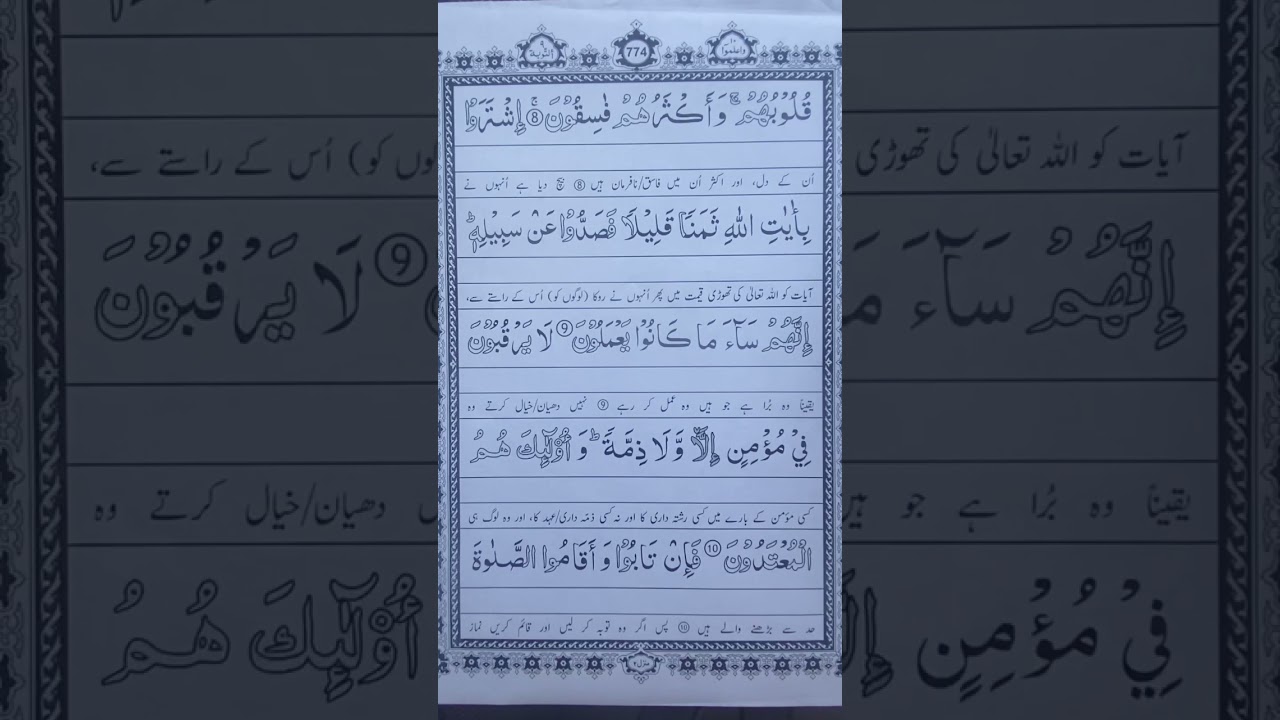 التوبة ٩
774
واعلموا ١٠
قُلُوْبُهُمْ ۚ وَاَكْثَرُهُمْ فٰسِقُوْنَ ۚ ⑧ اِشْتَرَوْا
اُن کے دل، اور اکثر اُن میں فاسق/نافرمان ہیں ⑧ بیچ دیا ہے اُنہوں نے
بِاٰيٰتِ اللّٰهِ ثَمَنًا قَلِيْلًا فَصَدُّوْا عَنْ سَبِيْلِهٖ ؕ
آیات کو اللہ تعالیٰ کی تھوڑی قیمت میں پھر اُنہوں نے روکا (لوگوں کو) اُس کے راستے سے،
اِنَّهُمْ سَآءَ مَا كَانُوْا يَعْمَلُوْنَ ⑨ لَا يَرْقُبُوْنَ
یقیناً وہ بُرا ہے جو ہیں وہ عمل کر رہے ⑨ نہیں دھیان/خیال کرتے وہ
فِيْ مُؤْمِنٍ اِلًّا وَّلَا ذِمَّةً ؕ وَ اُولٰٓئِكَ هُمُ
کسی مؤمن کے بارے میں کسی رشتہ داری کا اور نہ کسی ذمّہ داری/عہد کا، اور وہ لوگ ہی
الْمُعْتَدُوْنَ ⑩ فَاِنْ تَابُوْا وَ اَقَامُوا الصَّلٰوةَ
حد سے بڑھنے والے ہیں ⑩ پس اگر وہ توبہ کر لیں اور قائم کریں نماز
منزل ٢